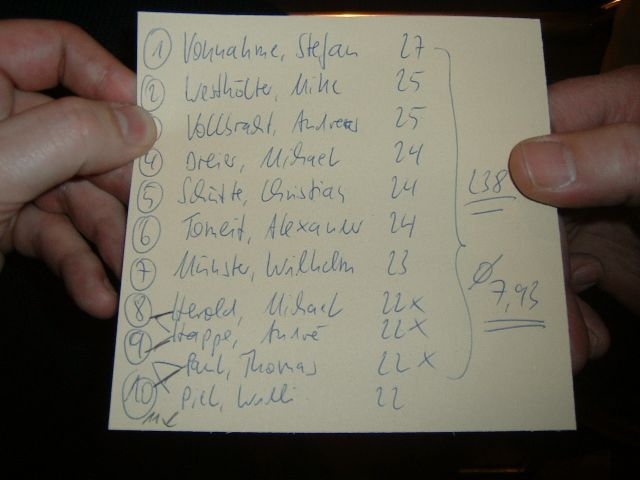 1 Vonnahme, Stefan 27
2 Westhölter, Mike 25
Vollbracht, Andreas 25
4 Dreier, Michael 24
5 Schütte, Christian 24
6 Tomeit, Alexander 24
7 Münster, Wilhelm 23
8 Herold, Michael 22 x
9 Happe, André 22 x
Paul, Thomas 22 x
10 Piel, Willi 22
11
238
Ø 7,93